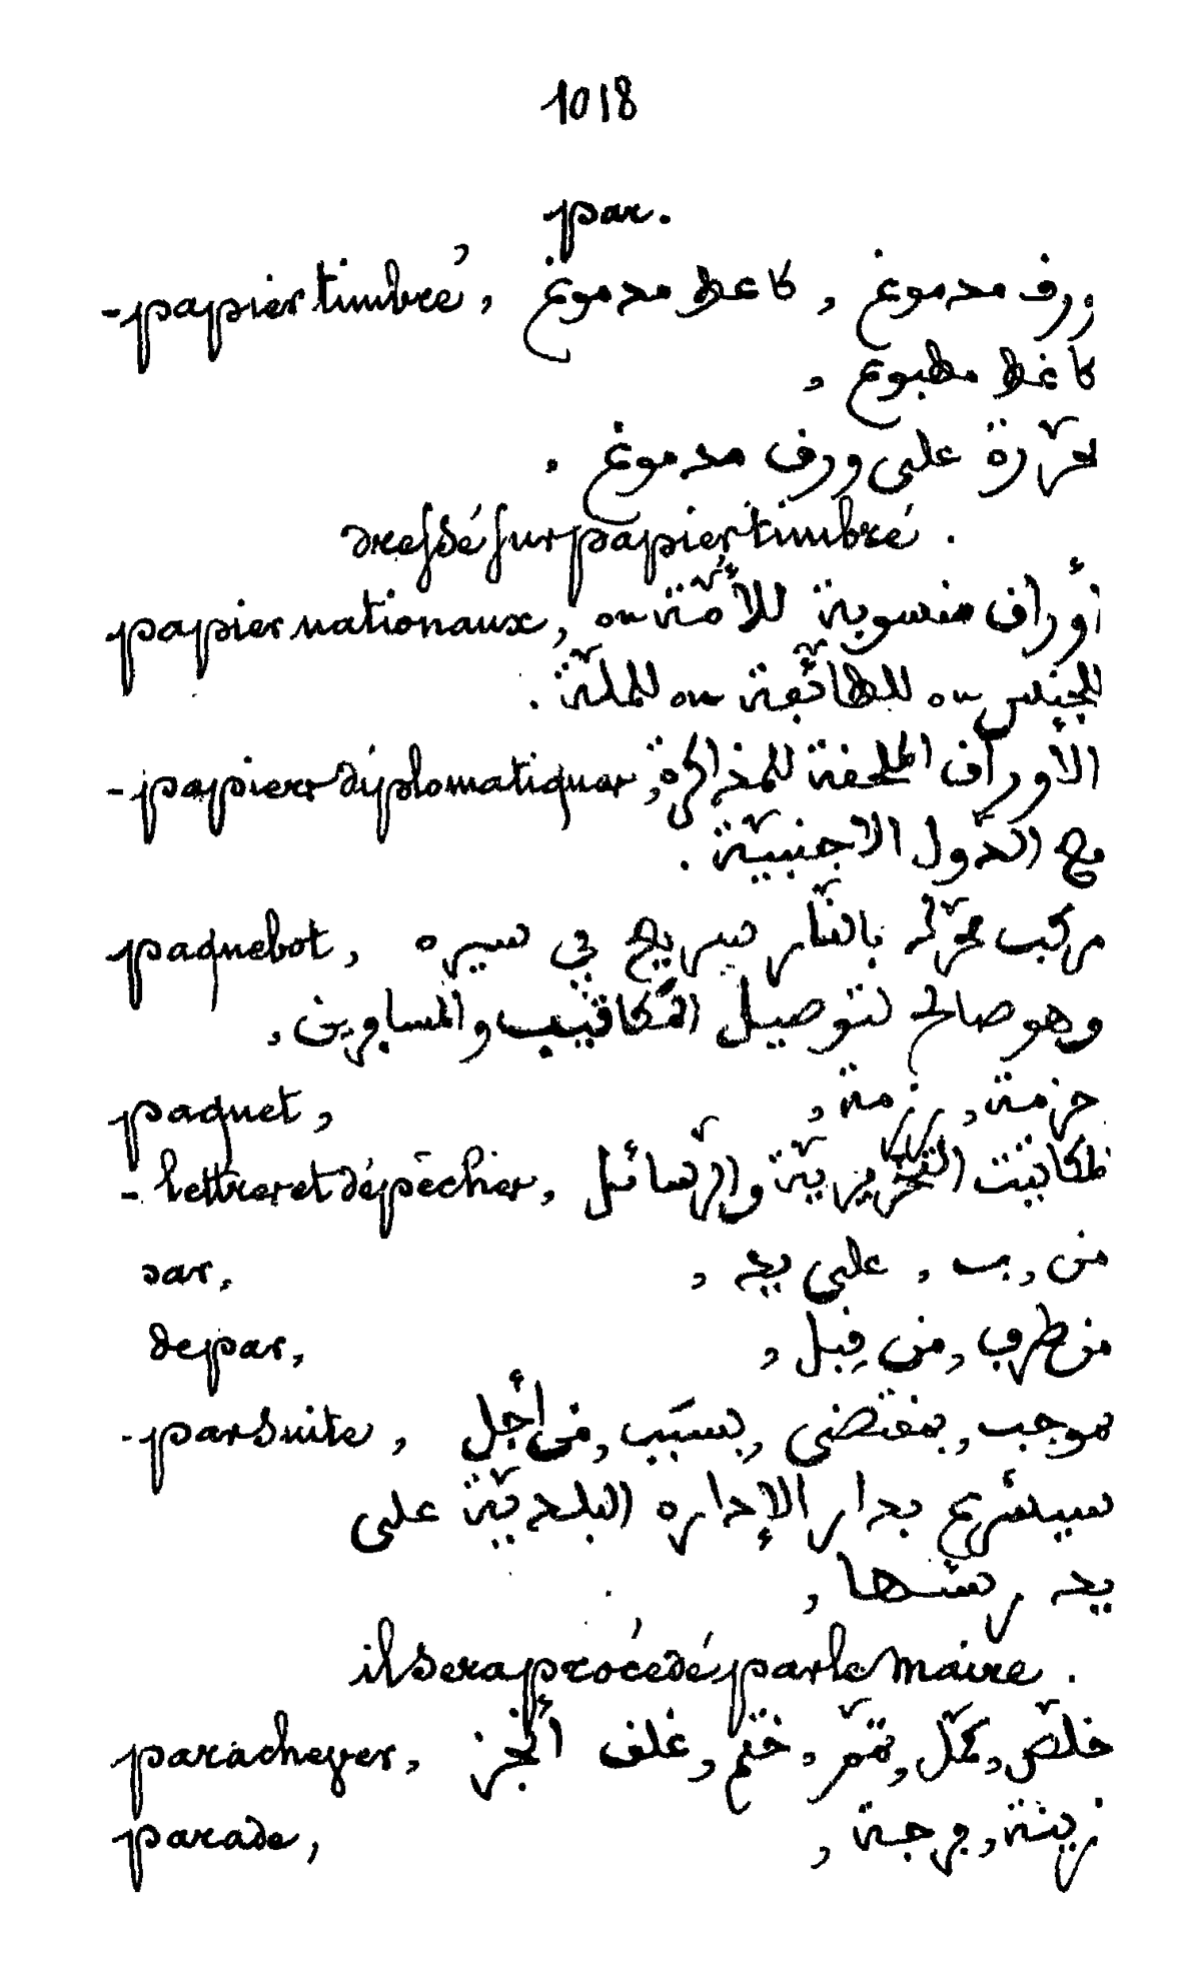 1018
par.
- papier timbré, ورق مدموغ , كاغط مدموغ
كاغط مطبوع ,
محرّرة على ورق مدموغ .
dressé sur papier timbré .
papier nationaux, أوراق منسوبة للأمّة ou
للجنس ou للطائفة ou للملّة .
- papiers diplomatiques, الأوراق المتعلقة للمذاكرة
مع الدّول الاجنبيّة .
paquebot, مركب محرّك بالنّار سريع في سيره
وهو صالح لتوصيل المكاتيب والمسافرين ,
paquet, حزمة , رزمة ,
- lettres et dépêches, المكاتبت التحريريّة والرّسائل
par, من , ب , على يد ,
de par, من طرف , من قِبل ,
- par suite, موجب , بمقتضى , بسبَب , من أجل
سيشرع بدار الإداره البلديّة على
يد رئسها ,
il sera procédé par le maire .
parachever, خلّص , كمّل , تمّم , ختم , غلف أنجز
parade, زينة , فرجة ,